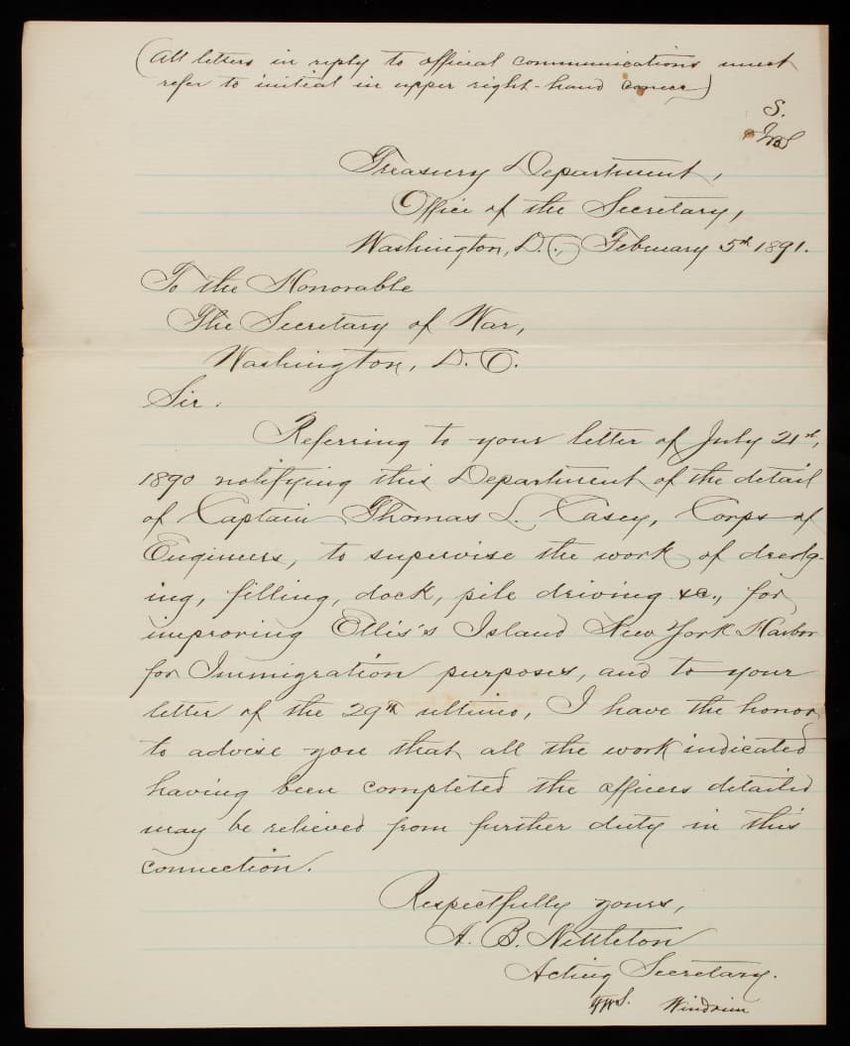 (All letters in reply to official communications must
refer to initial in upper right-hand corner)
S.
Treasury Department,
Office of the Secretary,
Washington, D.C., February 5th 1891.
To the Honorable
The Secretary of War,
Washington, D.C.
Sir:
Referring to your letter of July 21st,
1890 notifying this Department of the detail
of Captain Thomas L. Casey, Corps of
Engineers, to supervise the work of dredg-
ing, filling, dock, pile driving &c., for
improving Ellis's Island New York Harbor
for Immigration purposes, and to your
letter of the 29th ultimo, I have the honor
to advise you that all the work indicated
having been completed the officers detailed
may be relieved from further duty in this
connection.
Respectfully yours,
A. B. Nettleton
Acting Secretary.
Windrim